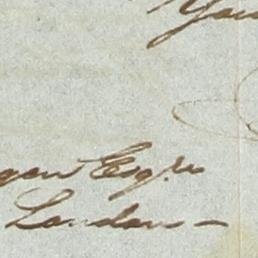 You
gan Esqre
London —